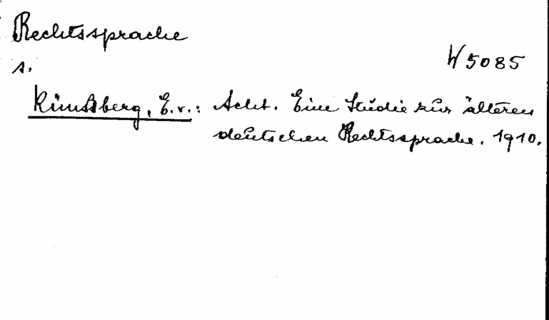 Rechtssprache
W 5085
s.
Künßberg, E.v.: Acht. Eine Studie zur älteren
deutschen Rechtssprache. 1910.